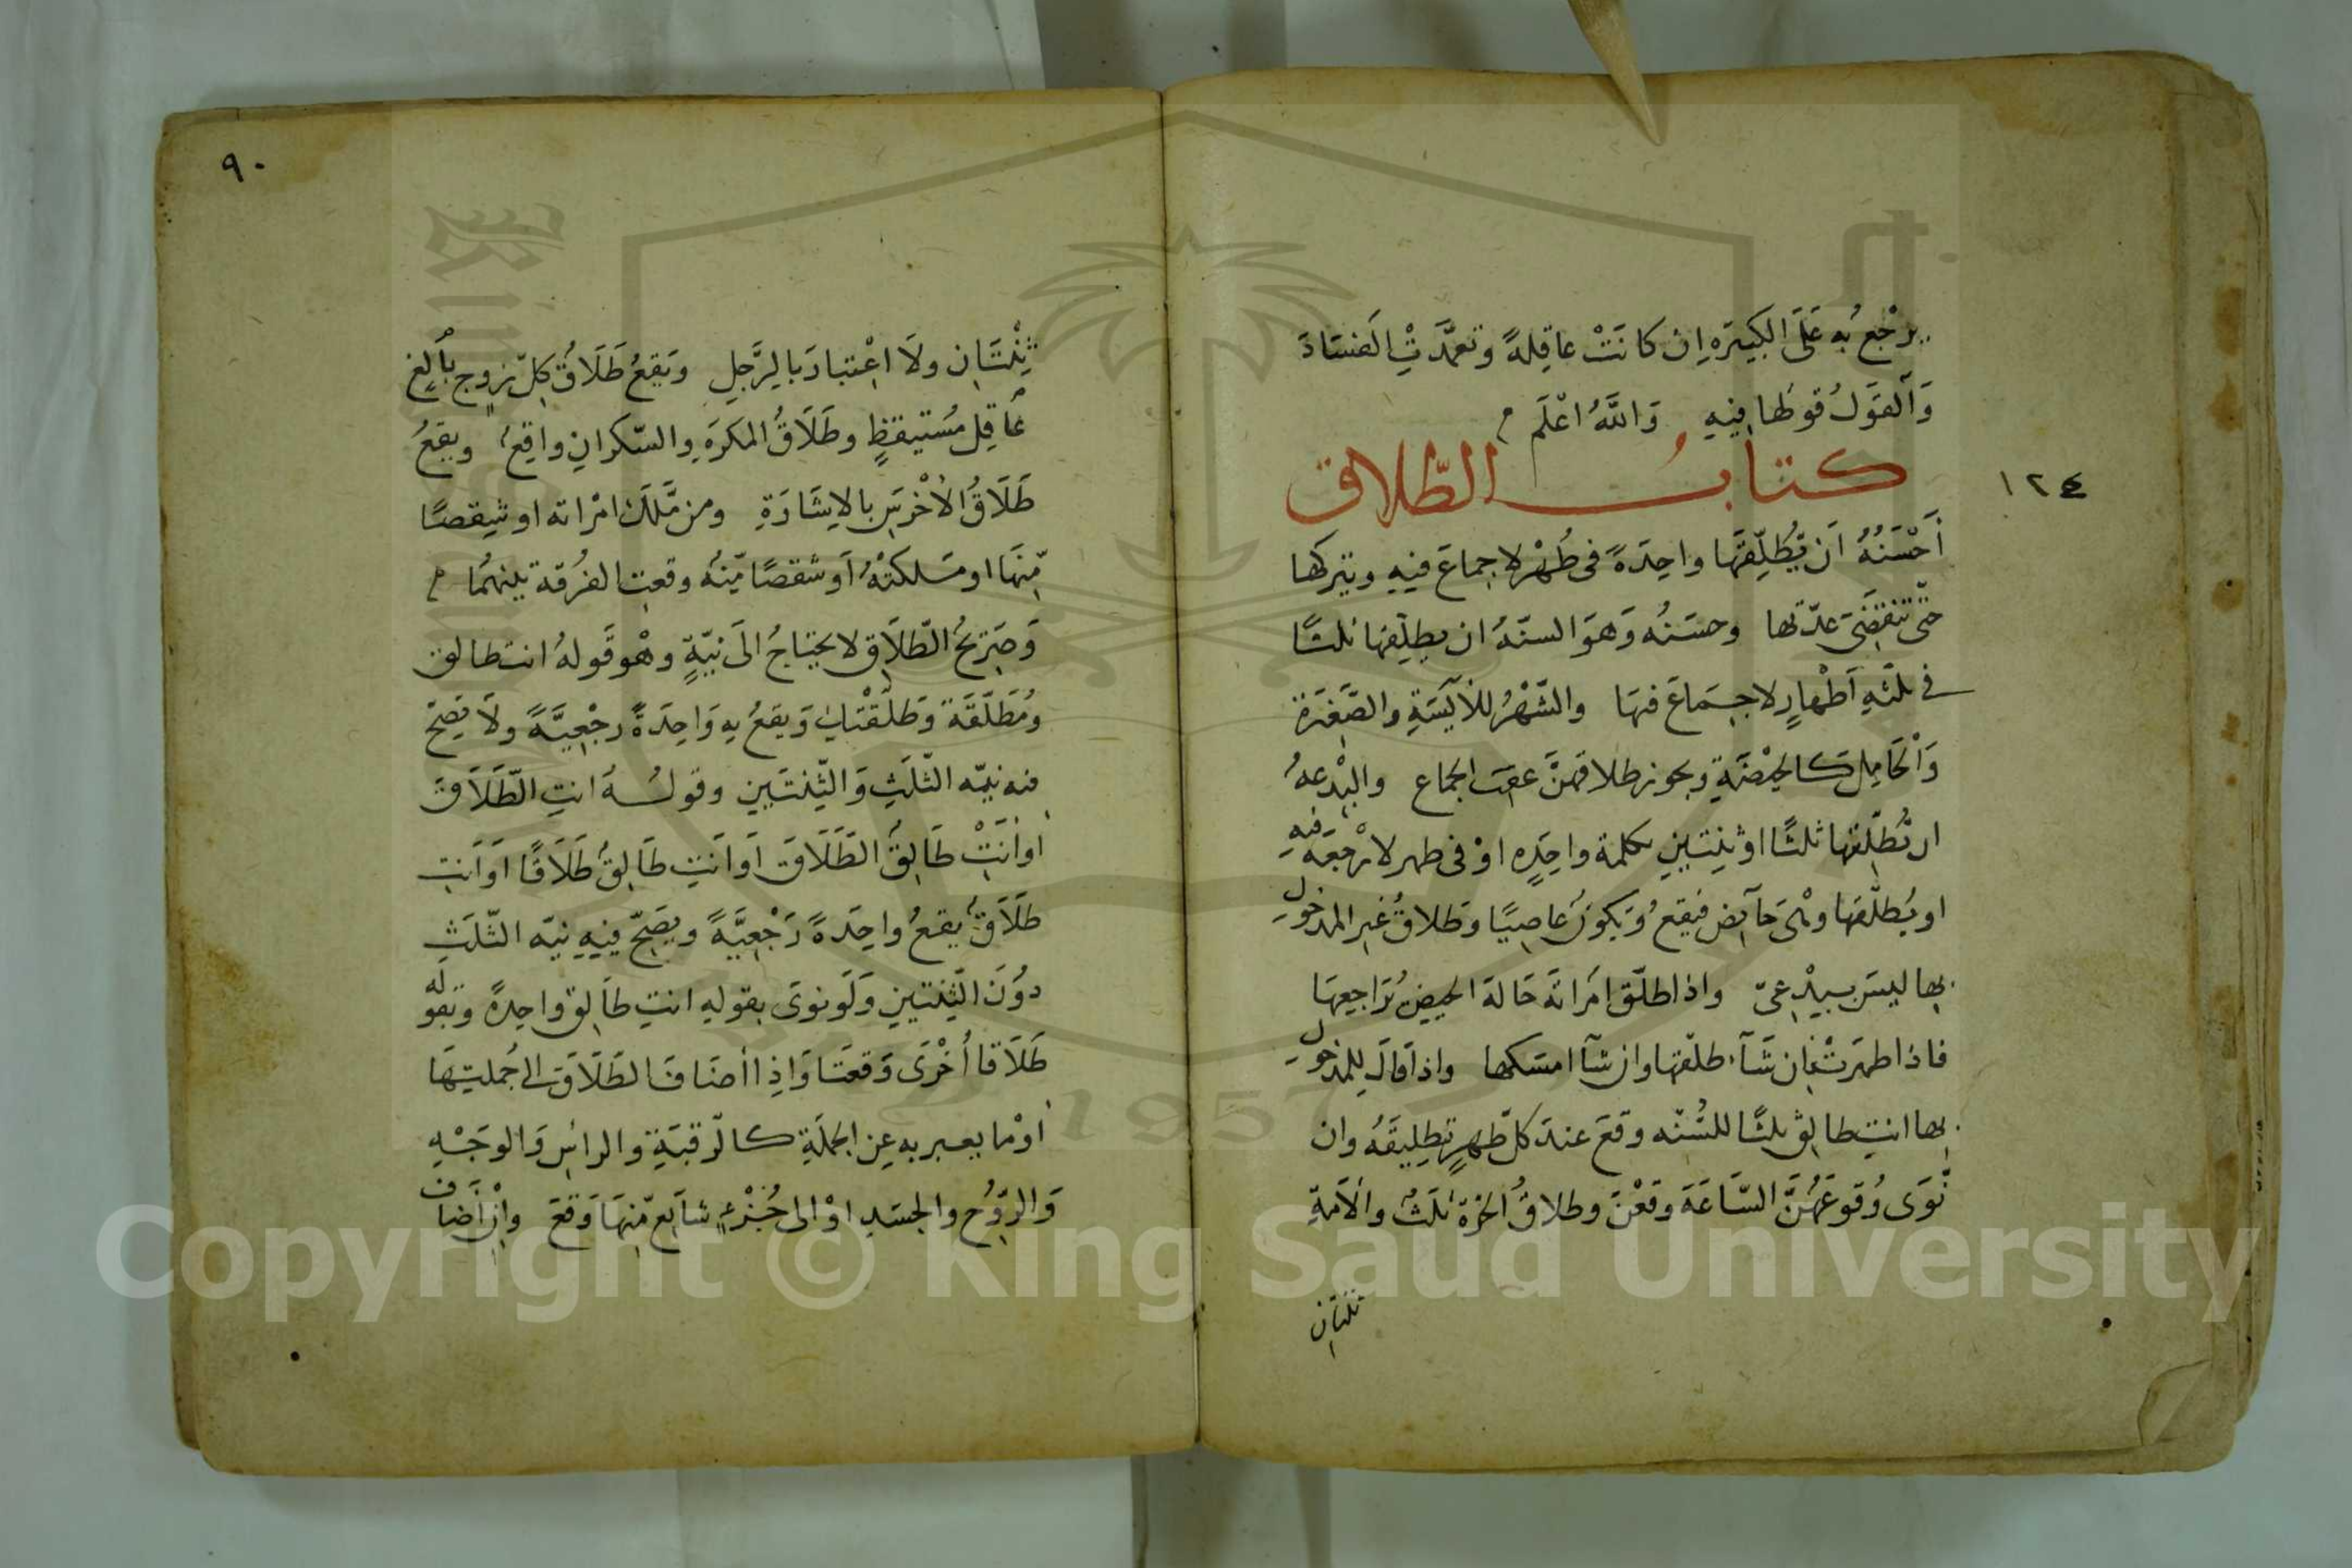 يرْجع بُه عَلَى الكبيرَه اِن كانَتْ عاقِلةً وتعمَّدتِ الفسَادَ
وَالقَولُ قولهَا فِيهِ وَاللَّهُ اعْلَم
كتابُ الطّلاق
١٢٤
أَحْسَنُهُ اَن يُّطَلِّقَهَا واحِدَةً فى طُهْرٍ لاجماعَ فيهِ ويتركها
حتّى تنقضَى عدّتها وحسَنُه وَهوَ السنّةُ ان يطلِّقها ثلثًا
فى ثلثهِ اَطْهارٍ لاجِمَاعَ فيهَا والشَّهْرُ للآيِسَةِ والصَّغِيرَة
وَالْحَامِل كالحيْضَةِ ويجوز طلاقهنَّ عقبَ الجماع والبِدْعهُ
ان يُّطلِّقها ثلثًا او ثِنتَينِ بكلمة واحِدَهٍ اوْ فى طهر لارَجْعَةَ فيهِ
او يُطلّقهَا وهْىَ حآئِض فيقعُ وَيكونُ عاصِيًا وَطلاقُ غيرِ المدخولِ
بها ليسَ ببِدْعىّ واذا طلّق امَراتَه حَالة الحيضِ يُرَاجِعهَا
فاذا طهرَتْ فإن شَآء طلّقها وان شآ امسَكها واذا قالَ للمدخولِ
بها انتِ طالِق ثلثًا للسُّنّه وقعَ عندَ كلّ طهرٍ تطلِيقَهُ وان
نَّوَى وُقوعَهُنَّ السَّاعَةَ وقعْنَ وطلاقُ الحرّة ثلَثٌ والاَمةِ
ثنتان
٩٠
ثِنْتَانِ ولَا اعْتبارَ بالرَّجلِ ويَقعُ طَلَاقُ كلّ زوج بالِغٍ
عاقِلٍ مُسْتيقظٍ وطَلَاقُ المكرَهِ والسّكرانِ واقعٌ ويقعُ
طَلَاقُ الاخْرَسِ بالاِشَارَةِ ومن مَّلَكَ امْراته او شِقصًا
مِّنهَا او مَلكتْهُ اَو شقصًا مِّنهُ وقعتِ الفرُقة بينهمَا
وَصَريحُ الطّلاَقِ لا يحتاجُ الَى نيّةٍ وهْو قَولهُ انت طالق
ومُطَلّقَة وَطلّقْتكِ وَيقعُ بهِ وَاحِدَةً رجْعِيَّةً ولَا تصِحّ
فيه نيّه الثّلثِ وَالثِّنتَينِ وقولُهُ انتِ الطّلَاقَ
اوانَتْ طَالِقُ الطَّلَاقَ اوانَتِ طَالِقٌ طَلَاقًا اَو انتِ
طَلَاقٌ يقعُ واحِدَةً رَجْعِيَّةً ويصَحّ فيهِ نيّه الثّلثِ
دوُنَ الثِّنتينِ وَلَو نوَى بقولهِ انتِ طالِق واحِدةً وبقوله
طَلَاقا أُخْرَى وَقعَتَا وَاِذا اضَافَ الطَلَاقَ الى جُملتِهَا
اوْ ما يعبر به عِن الجملَةِ كالرّقبَةِ والراسِ وَالوجَهِْ
وَالرّوُحِ والجسَدِ اوْ الى جُزْءٍ شآيعٍ مِّنهَا وَقعَ واِنْ اَضَاف
Copyright © King Saud University
1957